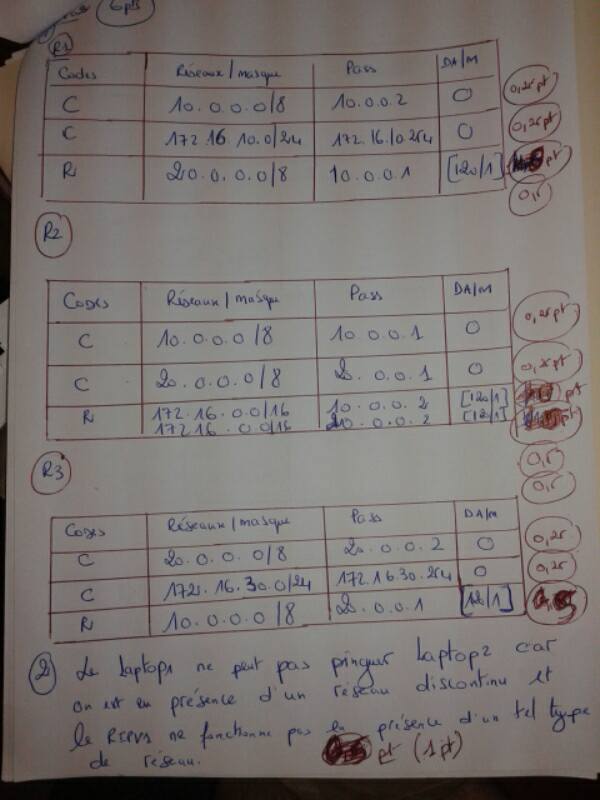 6pts
R1
Codes Réseaux/masque Pass DA/M
C 10.0.0.0/8 10.0.0.2 0 0,25pt
C 172.16.10.0/24 172.16.10.254 0 0,25pt
R 20.0.0.0/8 10.0.0.1 [120/1] pt
0,5
R2
Codes Réseaux/masque Pass DA/M
C 10.0.0.0/8 10.0.0.1 0 0,25pt
C 20.0.0.0/8 20.0.0.1 0 0,25pt
R 172.16.0.0/16 10.0.0.2 [120/1] pt
172.16.0.0/16 20.0.0.2 [120/1] pt
0,5
0,5
R3
Codes Réseaux/masque Pass DA/M
C 20.0.0.0/8 20.0.0.2 0 0,25
C 172.16.30.0/24 172.16.30.254 0 0,25
R 10.0.0.0/8 20.0.0.1 [120/1]
2) Le Laptop1 ne peut pas pinguer Laptop2 car
on est en présence d'un réseau discontinu et
le RIPV1 ne fonctionne pas en présence d'un tel type
de réseau. pt (1pt)